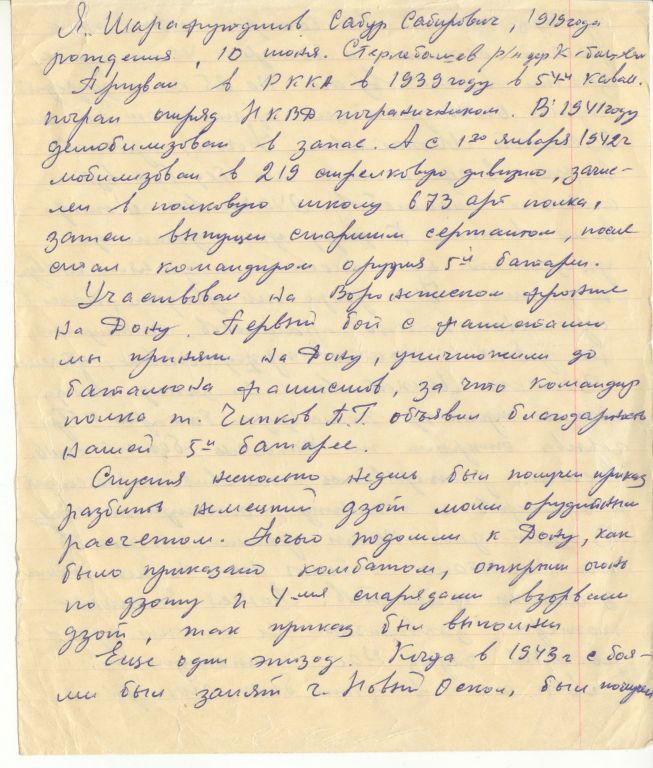 Я, Шарафутдинов Сабур Сабирович, 1919 года
рождения, 10 июня. Стерлибашев р/н дер К-
Призван в РККА в 1939 году в 54й кавал.
погран отряд НКВД пограничником. В 1941 году
демобилизован в запас. А с 1го января 1942 г
мобилизован в 219 стрелковую дивизию, зачис-
лен в полковую школу 673 арт полка,
затем выпущен старшим сержантом, после
стал командиром орудия 5й батареи.
Участвовал на Воронежском фронте
на Дону. Первый бой с фашистами
мы приняли на Дону, уничтожили до
батальона фашистов, за что командир
полка т. Чипков А.Г. объявил благодарность
нашей 5й батарее.
Спустя несколько недель был получен приказ
разбить немецкий дзот моим орудийным
расчетом. Ночью подошли к Дону, как
было приказано комбатом, открыли огонь
по дзоту и 4мя снарядами взорвали
дзот, так приказ был выполнен
Еще один эпизод. Когда в 1943 г с боя-
ми был занят г. Новый Оскол, был получен